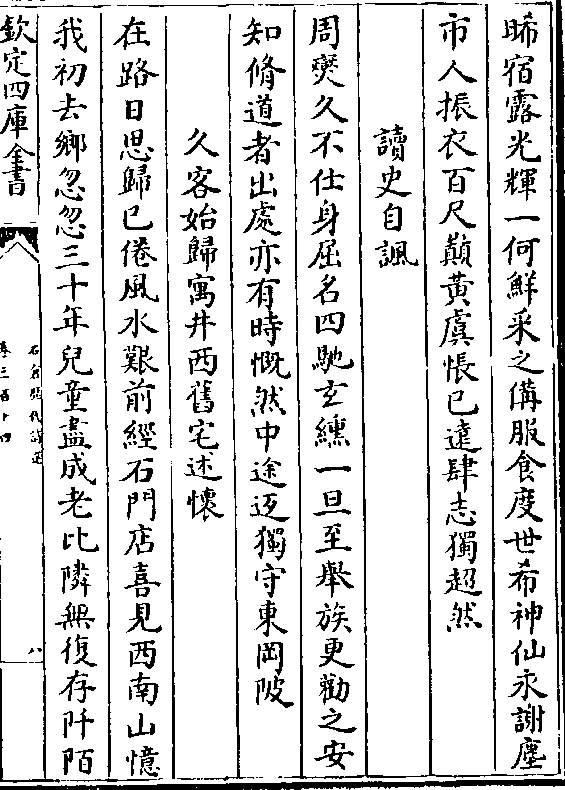 晞宿露光輝一何鮮采之備服食度世希神仙永謝塵
市人振衣百尺巔黃虞悵已遠肆志獨超然
讀史自諷
周爕久不仕身屈名四馳玄纁一旦至舉族更勸之安
知脩道者出處亦有時慨然中途返獨守東岡陂
久客始歸寓井西舊宅述懷
在路日思歸已倦風水艱前經石門店喜見西南山憶
我初去鄉忽忽三十年兒童盡成老比隣無復存阡陌
欽定四庫全書
石倉歷代詩選
卷三百十四
八